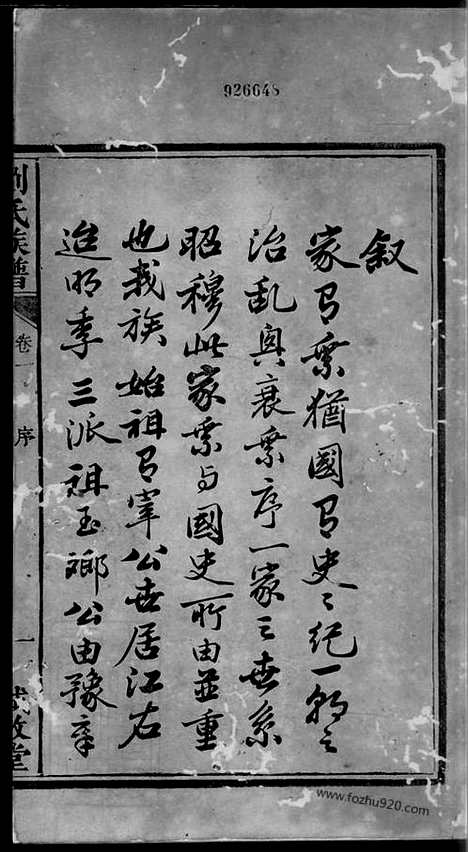 926648
叙
家有乘猶國有史〻紀一朝之
治乱興衰乘序一家之世系
昭穆此家乘与國史所由並重
也我族始祖有宰公世居江右
迨明季三派祖玉瑯公由豫章
劉氏族譜
卷一
序
一
堂
www.fozhu920.com